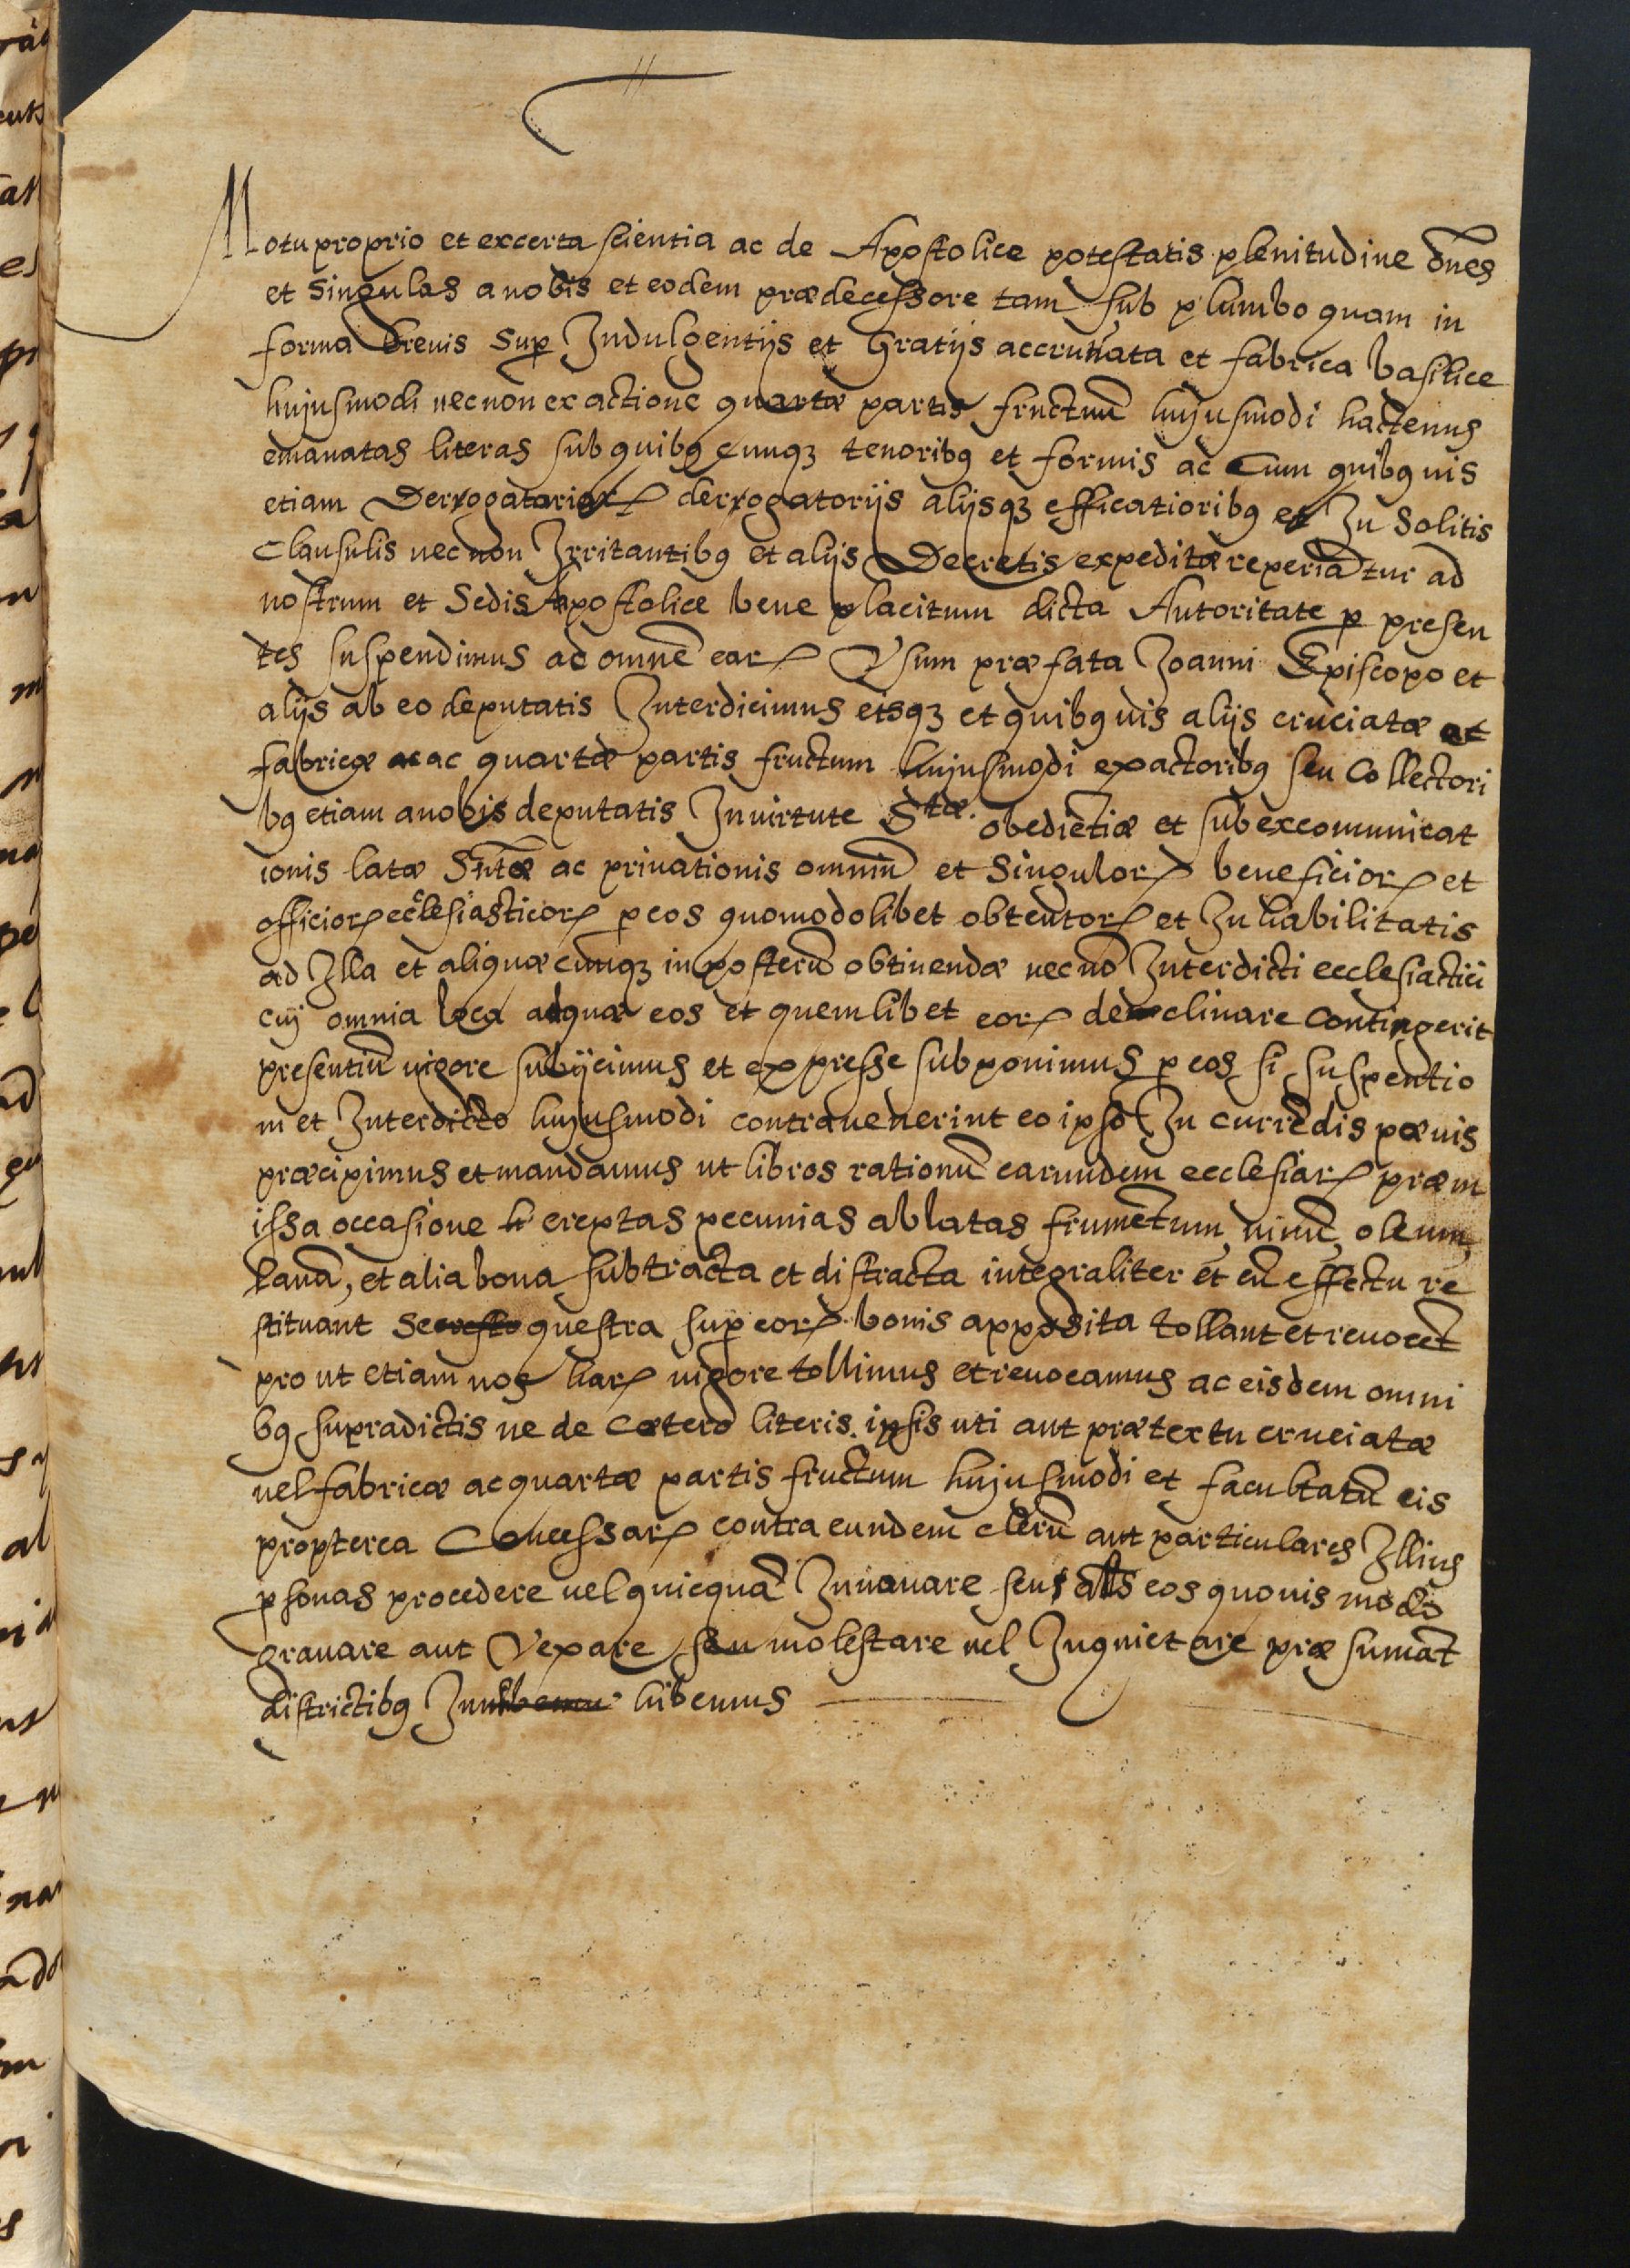 Motu proprio et ex certa scientia ac de Apostolice potestatis plenitudine õnes
et Singulas a nobis et eodem prædecessore tam sub plumbo quam in
forma brevis Sup Indulgentijs et Gratijs accrutiata et fabrica basilice
hujusmodi necnon exactione quartæ partis fructuũ hujusmodi hactenus
emanatas literas sub quibq cunqȝ tenoribq et formis ac Cum quibq uis
etiam Derrogatoriaꝝ derrogatorijs alijsqȝ efficatioribq et In Solitis
Clausulis nec non Irritantibq et alijs Decretis expeditæ reperiãtur ad
nostrum et Sedis Apostolice bene placitum dicta Autoritate ꝑ presen
tes suspendimus ac omnẽ earꝝ Vsum præfata Joanni Episcopo et
alijs ab eo deputatis Interdicimus eisqȝ et quibq uis alijs cruciatæ et
fabricæ ac ac quartæ partis fructum hujusmodi exactoribq seu Collectori
bq etiam a nobis deputatis In uirtute Stæ. obediẽtiæ et sub excomunicat
ionis latæ Sñtæ ac priuationis omniũ et Singulorꝝ beneficiorꝝ et
officiorꝝ ecclesiasticorꝝ ꝑ eos quomodolibet obtentorꝝ et In habilitatis
ad Illa et aliquæcunqȝ in posterũ obtinendæ nec nõ Interdicti ecclesiactici
cuj omnia loca ad quæ eos et quemlibet eorꝝ declinare Contingerit
presentiũ uigore subijcimus et expresse subponimus ꝑ eos si suspentio
ni et Interdicto hujusmodi contravenerint eo ipso In currẽdis pænis
præcipimus et mandamus ut libros rationũ earumdem ecclesiarꝝ præm
issa occasione ereptas pecunias ablatas frumẽtum, uinũ, oleum,
lanã, et alia bona subtracta et distracta integraliter et cũ effectu re
stituant Se questra sup eorꝝ bonis apposita tollant et reuocẽt
pro ut etiam nos harꝝ uigore tollimus et reuocamus ac eisdem omni
bq supradictis ne de Cætero literis ipsis uti aut prætextu cruciatæ
uel fabricæ ac quartæ partis fructum hujusmodi et facultatũ eis
propterea Concessarꝝ contra eundem clerũ aut particulares Illius
ꝑsonas procedere uel quicquã Innouare seu als eos quouis modo
grauare aut Vexare seu molestare uel Inquietare præsumãt
districtibq In hibemus